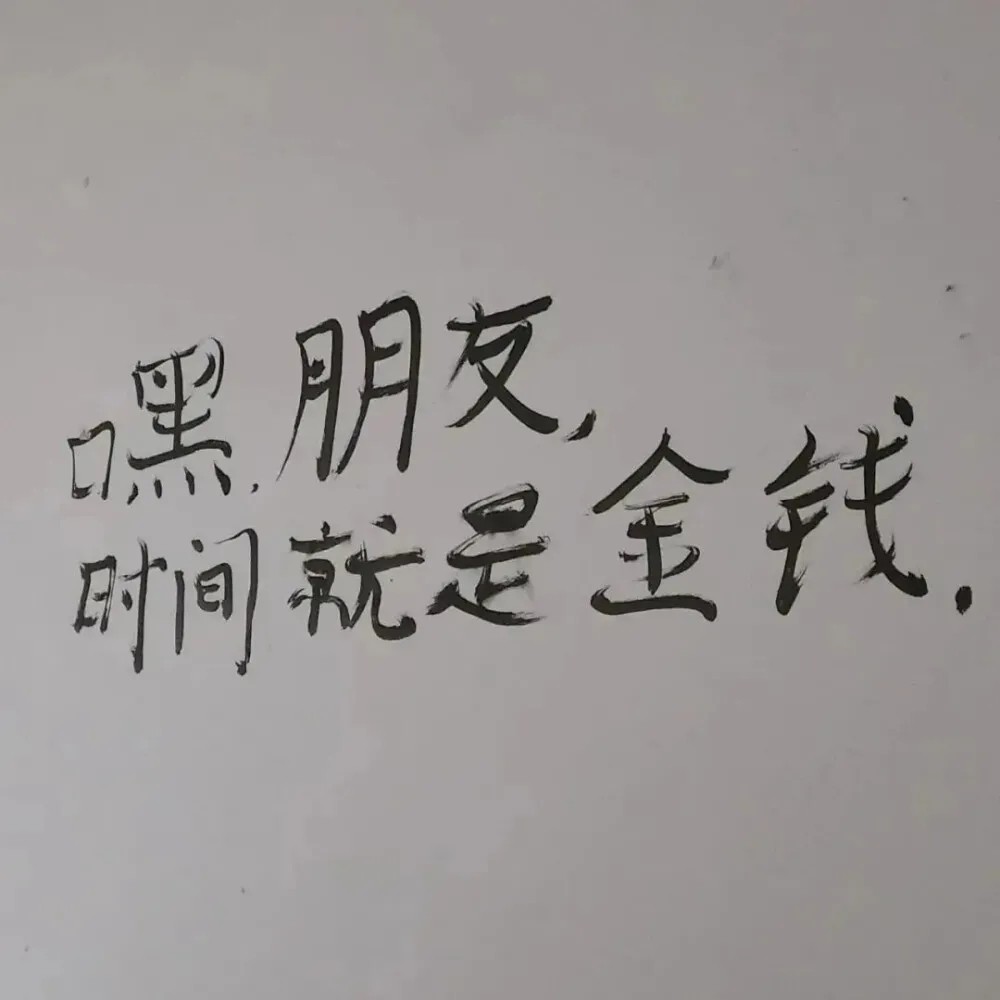 嘿,朋友,
时间就是金钱.